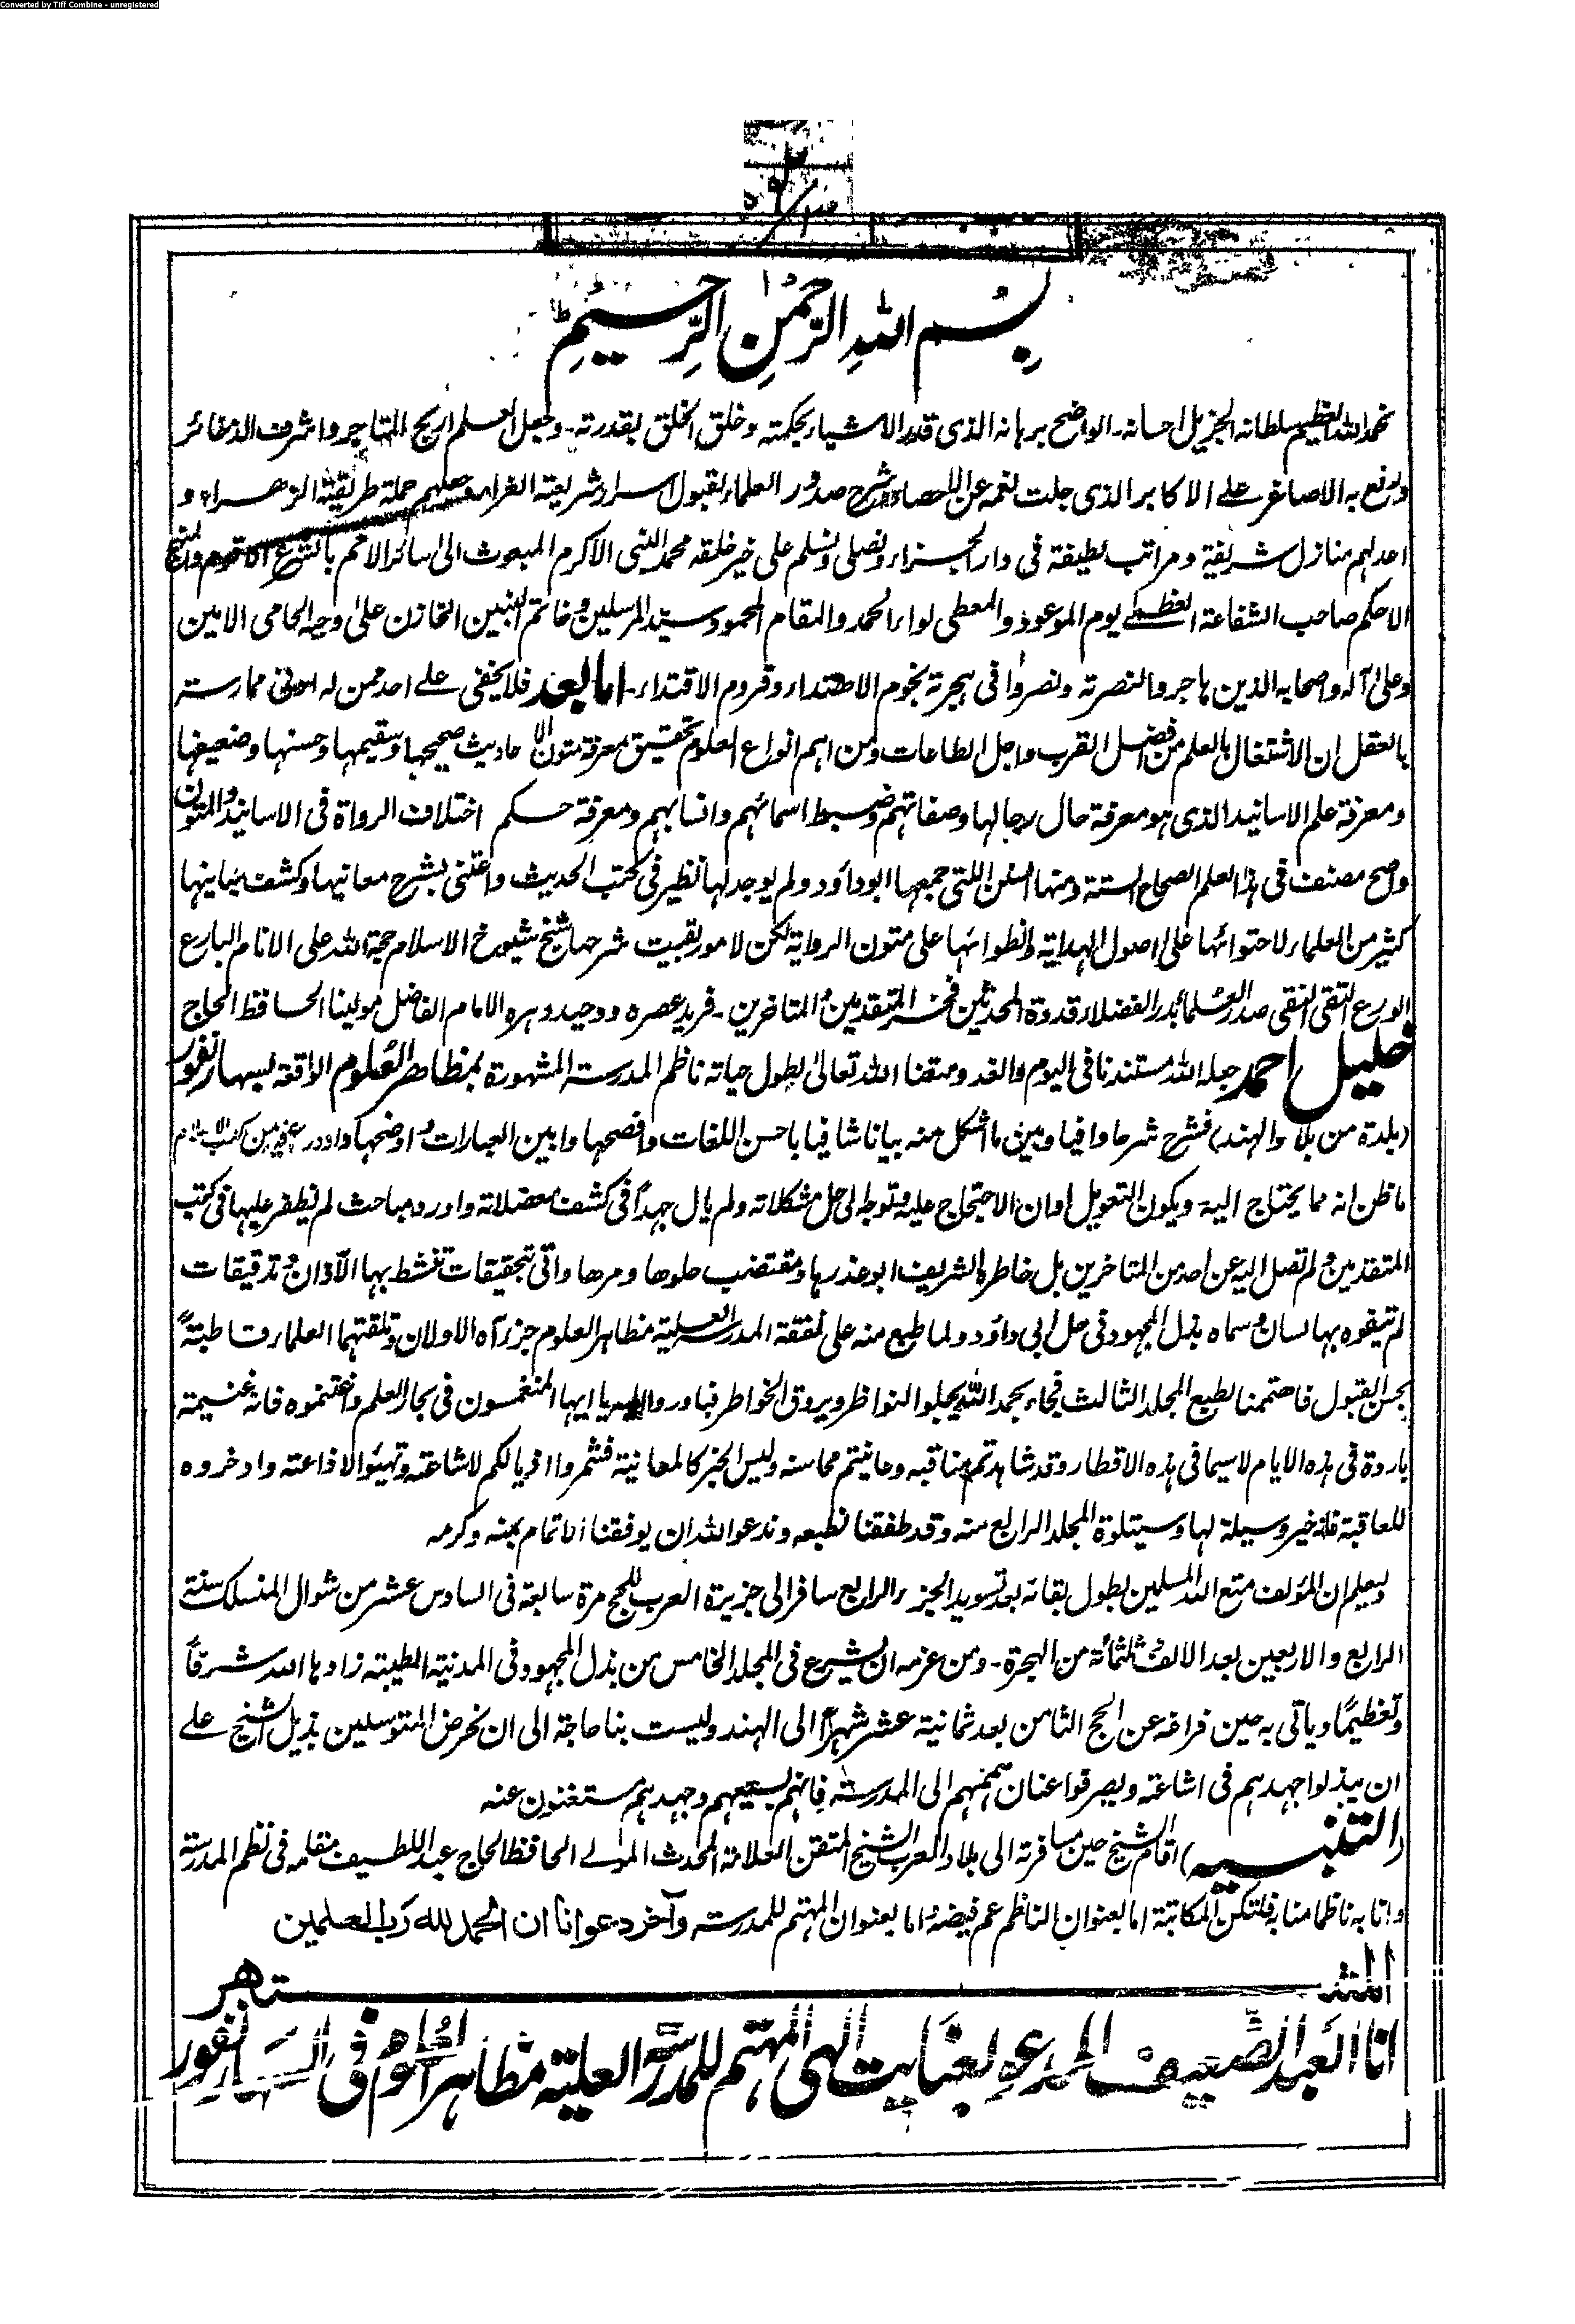 Converted by Tiff Combine - unregistered
بسم اللهِ الرَّحمٰنِ الرَّحِيمِ
نحمد الله العظيم سلطانه الجزيل احسانه۔ الواضح برهانه الذى قدر الاشياء بحكمته وخلق الخلق بقدرته۔ وجعل العلم اربح المتاجر واشرف الذخائر
ورفع به الاصاغر على الاكابر الذى جلت نعمه عن الاحصاء وشرح صدور العلماء لقبول اسرار شريعته الغراء وجعلهم حملة طريقته الزهراء و
اعد لهم منازل شريفة ومراتب لطيفة فى دار الجزاء ونصلى ونسلم على خير خلقه محمد النبى الاكرم المبعوث الى سائر الامم بالشرع الاقوم والمنهج
الاحكم صاحب الشفاعة العظمى يوم الموعود والمعطى لواء الحمد والمقام المحمود سيد المرسلين وخاتم النبيين الخازن على وحيه الحامى الامين
وعلى آله واصحابه الذين هاجروا لنصرته ونصروا فى هجرته نجوم الاهتداء وقروم الاقتداء۔ اما بعد فلا يخفى على احد ممن له ادنى ممارسة
بالعقل ان الاشتغال بالعلم من افضل القرب واجل الطاعات ومن اهم انواع العلوم تحقيق معرفة متون الاحاديث صحيحها وسقيمها وحسنها وضعيفها
ومعرفة علم الاسانيد الذى هو معرفة حال رجالها وصفاتهم وضبط اسمائهم وانسابهم ومعرفة حكم اختلاف الرواة فى الاسانيد والمتون
واصح مصنف فى هذا العلم الصحاح الستة ومنها السنن اللتى جمعها ابوداؤد ولم يوجد لها نظير فى كتب الحديث واعتنى بشرح معانيها وكشف مبانيها
كثير من العلماء لاحتوائها على اصول الهداية وانطوائها على متون الرواية لكن لامور بقيت شرحها شيخ شيوخ الاسلام حجة الله على الانام البارع
الورع التقى النقى صدر العلماء بدر الفضلاء قدوة المحدثين فخر المتقدمين والمتاخرين۔ فريد عصره ووحيد دهره الامام الفاضل مولينا الحافظ الحاج
خليل احمد جعله الله مستندنا فى اليوم والغد ومتعنا الله تعالىٰ بطول حياته ناظم المدرسة المشهورة بمظاهر العلوم الواقعة بسهارنفور
(بلدة من بلاد الهند) فشرح شرحا وافيا وبين ما اشكل منه بيانا شافيا باحسن اللغات وافصحها وابين العبارات واوضحها واورد فيه من كتب
ما ظن انه مما يحتاج اليه ويكون التعويل اوان الاحتياج عليه وتوجه الى حل مشكلاته ولم يال جهداً فى كشف معضلاته واورد مباحث لم نظفر عليها فى كتب
المتقدمين ولم تصل اليه عن احد من المتاخرين بل خاطره الشريف ابو عذرها ومقتضب حلوها ومرها واتى بتحقيقات تنشط بها الآذان وتدقيقات
لم تتفوه بها لسان وسماه بذل المجهود فى حل ابى داؤد ولما طبع منه على نفقة المدرسة العلية مظاهر العلوم جزآه الاولان وتلقتهما العلماء قاطبةً
بحسن القبول فاهتممنا بطبع المجلد الثالث فجاء بحمد الله يجلوا النواظر ويروق الخواطر فبادروا اليه يا ايها المنغمسون فى بحار العلم واغتنموه فانه غنيمة
باردة فى هذه الايام لاسيما فى هذه الاقطار وقد شاهدتم مناقبه وعاينتم محاسنه وليس الخبر كالمعاينة فشمروا اذيالكم لاشاعته وتهيئوا لاذاعته وادخروه
للعاقبة فانه خير وسيلة لها وسيتلوه المجلد الرابع منه وقد طفقنا نطبعه وندعو الله ان يوفقنا الاتمام بمنه وكرمه
وليعلم ان المؤلف متع الله المسلمين بطول بقائه بعد تسويد الجزء الرابع سافر الى جزيرة العرب للحج مرة سابعة فى السادس عشر من شوال المنسلك سنة
الرابع والاربعين بعد الالف وثلثمائة من الهجرة۔ ومن عزمه ان يشرع فى المجلد الخامس من بذل المجهود فى المدينة الطيبة زادها الله شرفاً
وتعظيمًا وياتى به حين فراغه عن الحج الثامن بعد ثمانية عشر شهراً الى الهند وليست بنا حاجة الى ان نحرض المتوسلين بذيل الشيخ على
ان يبذلوا جهدهم فى اشاعته ويصرفوا عنان هممهم الى المدرسة فانهم بسعيهم وجهدهم مستغنون عنه
(التنبيه) اقام الشيخ حين مسافرته الى بلاد العرب الشيخ المتقن العلامة المحدث المولى الحافظ الحاج عبد اللطيف مقامه فى نظم المدرسة
وانابه ناظما منابه فلتكن المكاتبة اما بعنوان الناظم عم فيضهُ اما بعنوان المهتم للمدرسة وآخر دعوانا ان الحمد لله رب العلمين
المشتهر
انا العبد الضعيف المدعو بعنايت الهى المهتم للمدرسة العلية مظاهر العلوم فى السهارنفور